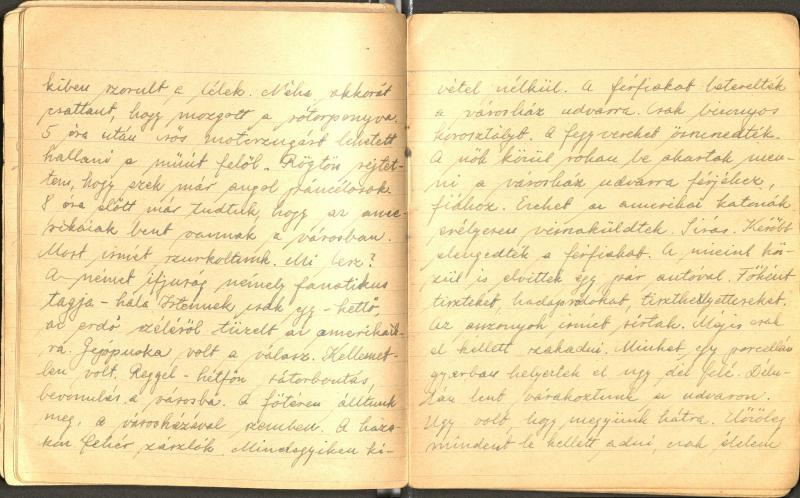 kiben szorult a lélek. Néha akkorát
csattant, hogy mozgott a sátorponyva.
5 óra után erős motorzúgást lehetett
hallani a műút felől. Rögtön sejtet-
tem, hogy ezek már angol páncélosok.
8 óra előtt már tudtuk, hogy az ame-
rikaiak bent vannak a városban.
Most ismét szurkoltunk. Mi lesz?
A német ifjuság némely fanatikus
tagja - hála Istennek csak egy - kettő,
az erdő széléről tüzelt az amerikaik-
ra. Géppuska volt a válasz. Kellemet-
len volt. Reggel - hétfőn sátorbontás,
bevonulás a városba. A főtéren álltunk
meg, a városházával szemben. A háza-
kon fehér zászlók. Mindegyiken ki-
vétel nélkül. A férfiakat beterelték
a városház udvarra. Csak bizonyos
korosztályt. A fegyvereket összeszedték.
A nők körül rohan be akartak men-
ni a városház udvarra férjéhez,
fiához. Ezeket az amerikai katonák
erélyesen visszaküldtek. Sirás. Később
elengedték a férfiakat. A mieink kö-
zül is elvittek egy pár autóval. Főként
tiszteket, hadapródokat, tiszthelyetteseket.
Az asszonyok ismét sírtak. Mégis csak
el kellett szakadni. Minket egy porcellán
gyárban helyeztek el ugy dél felé. Délu-
tán lent várakoztunk az udvaron.
Ugy volt, hogy megyünk hátra.
mindent le kellett adni, csak élelem